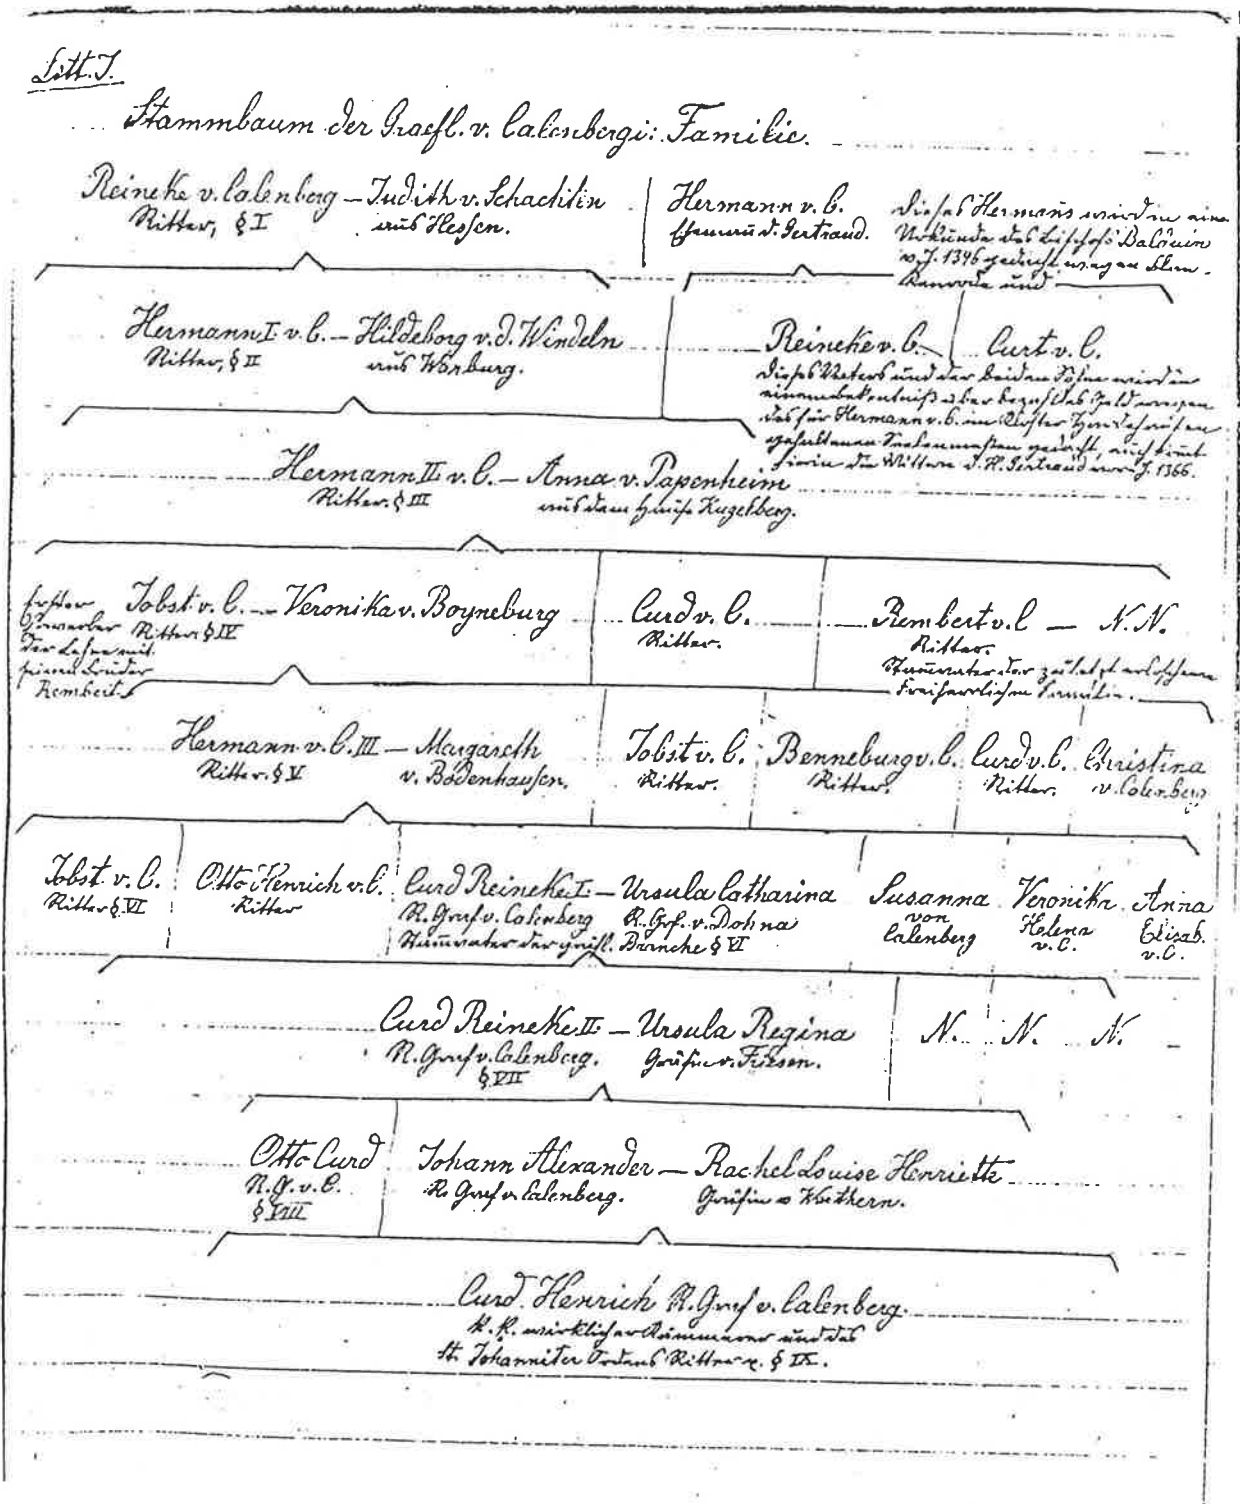 Litt. J.
Stammbaum der Graefl. v. Calenbergi: Familie.
Reineke v. Calenberg — Judith v. Schachtin
Ritter, § I aus Hessen.
Hermann v. C.
Ehemann d. Gertraud.
Dieses Hermans wird in eine
Urkunde des Bischofs Balduin
v. J. 1346 gedacht wegen
und
Hermann I v. C. — Hildeborg v. d. Windeln
Ritter, § II aus Warburg.
Reineke v. C. — Curt v. C.
Dieses Vaters und der beiden Söhne wird in
einem bekentniß über bezahltes Geld wegen
des für Hermann v. C. im Kloster Hardehausen
gehaltenen Seelenmeßen gedacht, auch
die Mittwe d. H. Gertraud v. J. 1366.
Hermann II v. C. — Anna v. Papenheim
Ritter. § III aus dem Hause Kugelberg.
Erster
Erwerber
der Lehne mit
seinem Bruder
Rembert.
Jobst v. C. — Veronika v. Boyneburg
Ritter § IV
Curd v. C.
Ritter.
Rembert v. C — N. N.
Ritter.
Stammvater der zuletzt erloschenen
Freiherrlichen Familie.
Hermann v. C. III — Margareth
Ritter. § V v. Bodenhausen.
Jobst v. C.
Ritter.
Benneburg v. C.
Ritter.
Curd v. C.
Ritter.
Christina
v. Calenberg
Jobst v. C.
Ritter § VI
Otto Henrich v. C.
Ritter
Curd Reineke I. — Ursula Catharina
R. Graf v. Calenberg R. Grf. v. Dohna
Stammvater der gräfl. Branche § VI
Susanna
von
Calenberg
Veronika
Helena
v. C.
Anna
Elisab.
v. C.
Curd Reineke II. — Ursula Regina
R. Graf v. Calenberg. Gräfin v. Friesen.
§ VII
N. N. N.
Otto Curd
R. G. v. C.
§ VIII
Johann Alexander — Rachel Louise Henriette
R. Graf v. Calenberg. Gräfin v Werthern.
Curd Henrich R. Graf v. Calenberg.
K. K. wirklicher Kämmerer und des
St. Johanniter Ordens Ritter p. § IX.